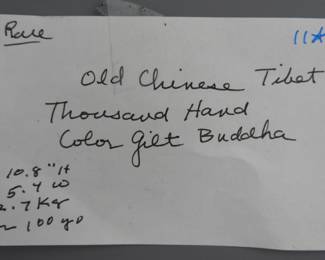 Rare
11A
Old Chinese Tibet
Thousand Hand
Color Gilt Buddha
10.8" H
5.4 W
2.7 Kg
100 yo